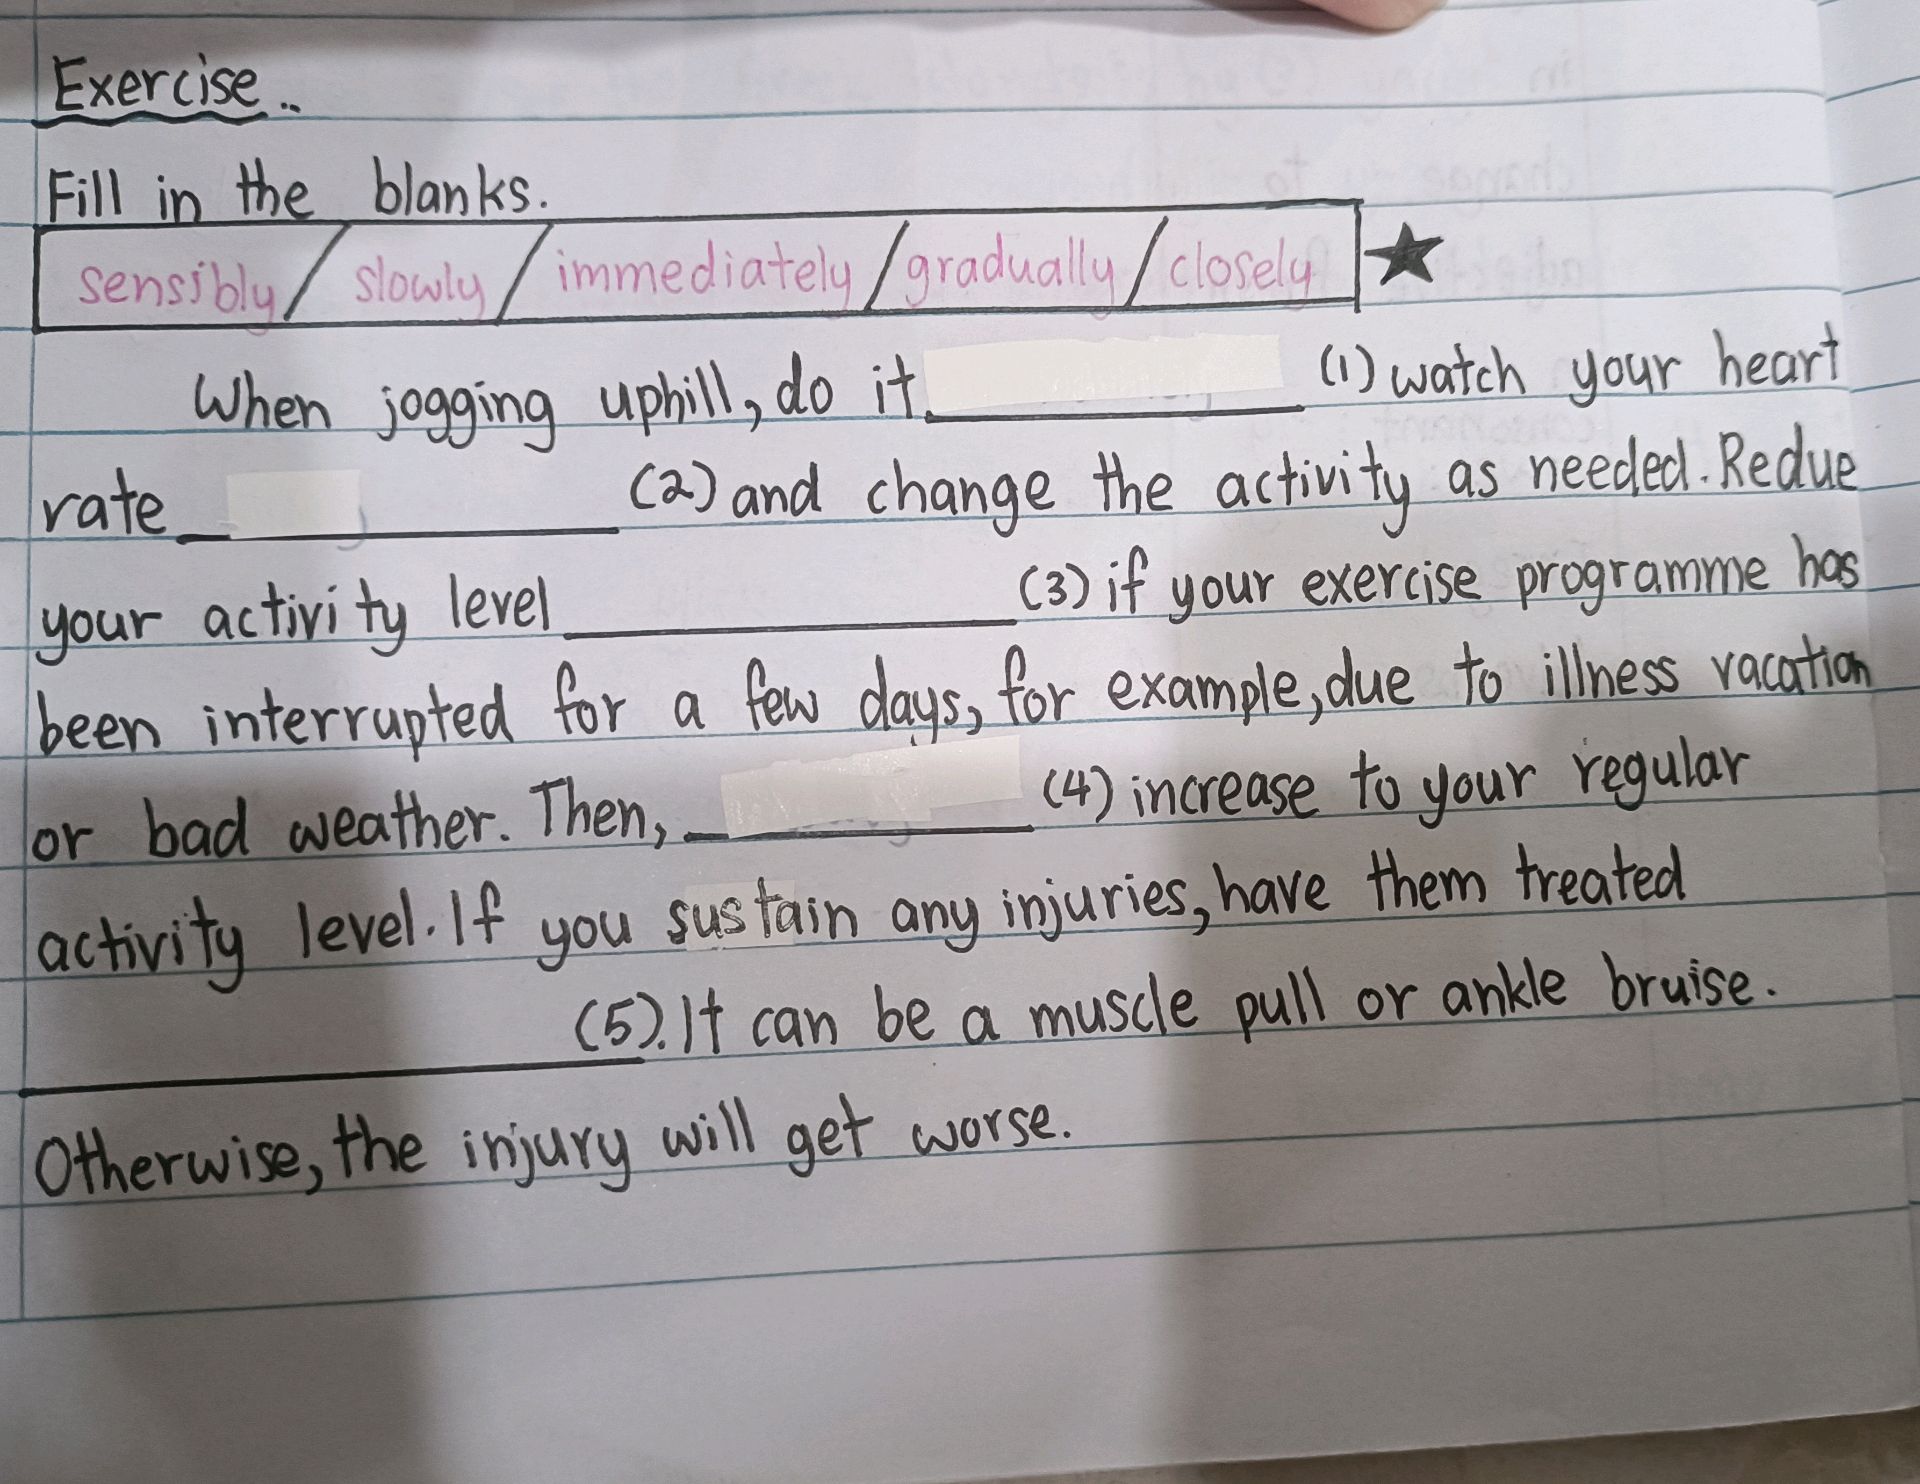 Exercise..
Fill in the blanks.
sensibly / slowly / immediately / gradually / closely ★
When jogging uphill, do it ____________ (1) watch your heart
rate ____________ (2) and change the activity as needed. Redue
your activity level ____________ (3) if your exercise programme has
been interrupted for a few days, for example, due to illness vacation
or bad weather. Then, ____________ (4) increase to your regular
activity level. If you sustain any injuries, have them treated
____________ (5). It can be a muscle pull or ankle bruise.
Otherwise, the injury will get worse.